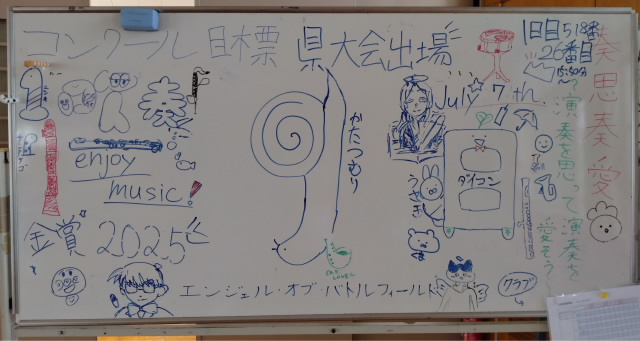 コンクール目標 県大会出場
1日目 518番
26番目
15:50分
奏思奏愛
演奏を思って演奏を愛そう
July 7th
かたつむり
enjoy
music!
うさぎ
ダイコン
金賞 2025
エンジェル・オブ・バトルフィールド
クラブ